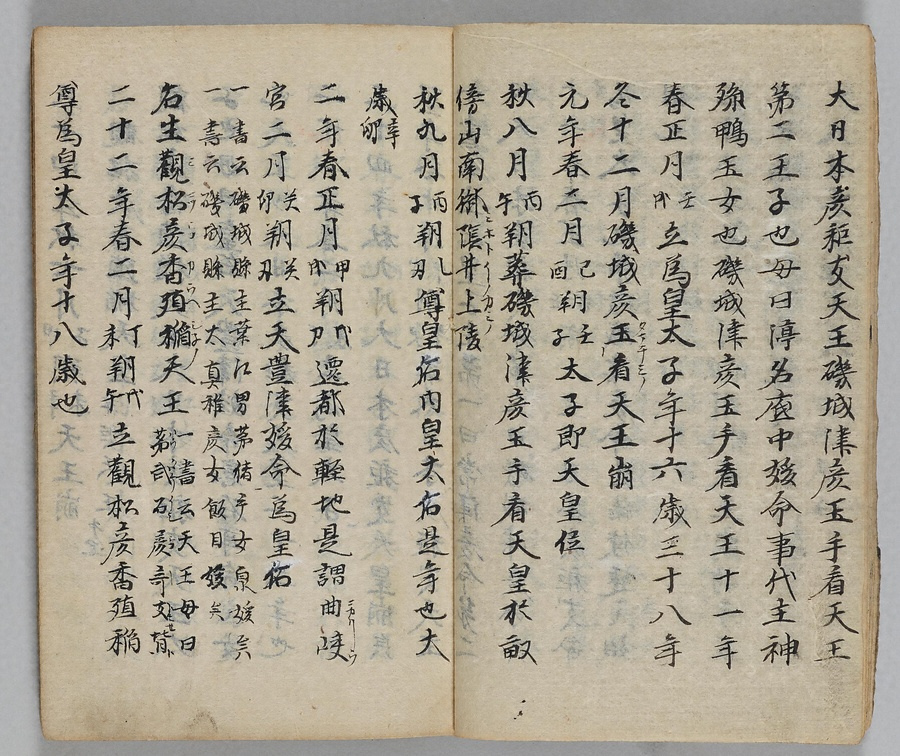 大日本彦秬友天王磯城津彦玉手看天王
第二王子也母曰渟名底中媛命事代主神
孫鴨玉女也磯城津彦玉手看天王十一年
春正月壬戌立為皇太子年十六歳三十八年
冬十二月磯城彦玉看天王崩
元年春二月己酉朔壬子太子即天皇位
秋八月丙午朔葬磯城津彦玉手看天皇於畝
傍山南御陰井上陵
秋九月丙子朔乙丑尊皇后内皇太后是年也大
歳辛卯
二年春正月甲戌朔戊刀遷都於軽地是謂曲峽
宮二月癸卯朔癸刃立天豊津媛命為皇后
一書云磯城縣主葉江男弟猪手女泉媛
一書云磯城縣主太真稚彦女飯日媛
名生觀松彦香殖稲天王一書云天王母曰
弟武石彦奇友背
二十二年春二月丁未朔戊午立觀松彦香殖稲
尊為皇太子年十八歳也